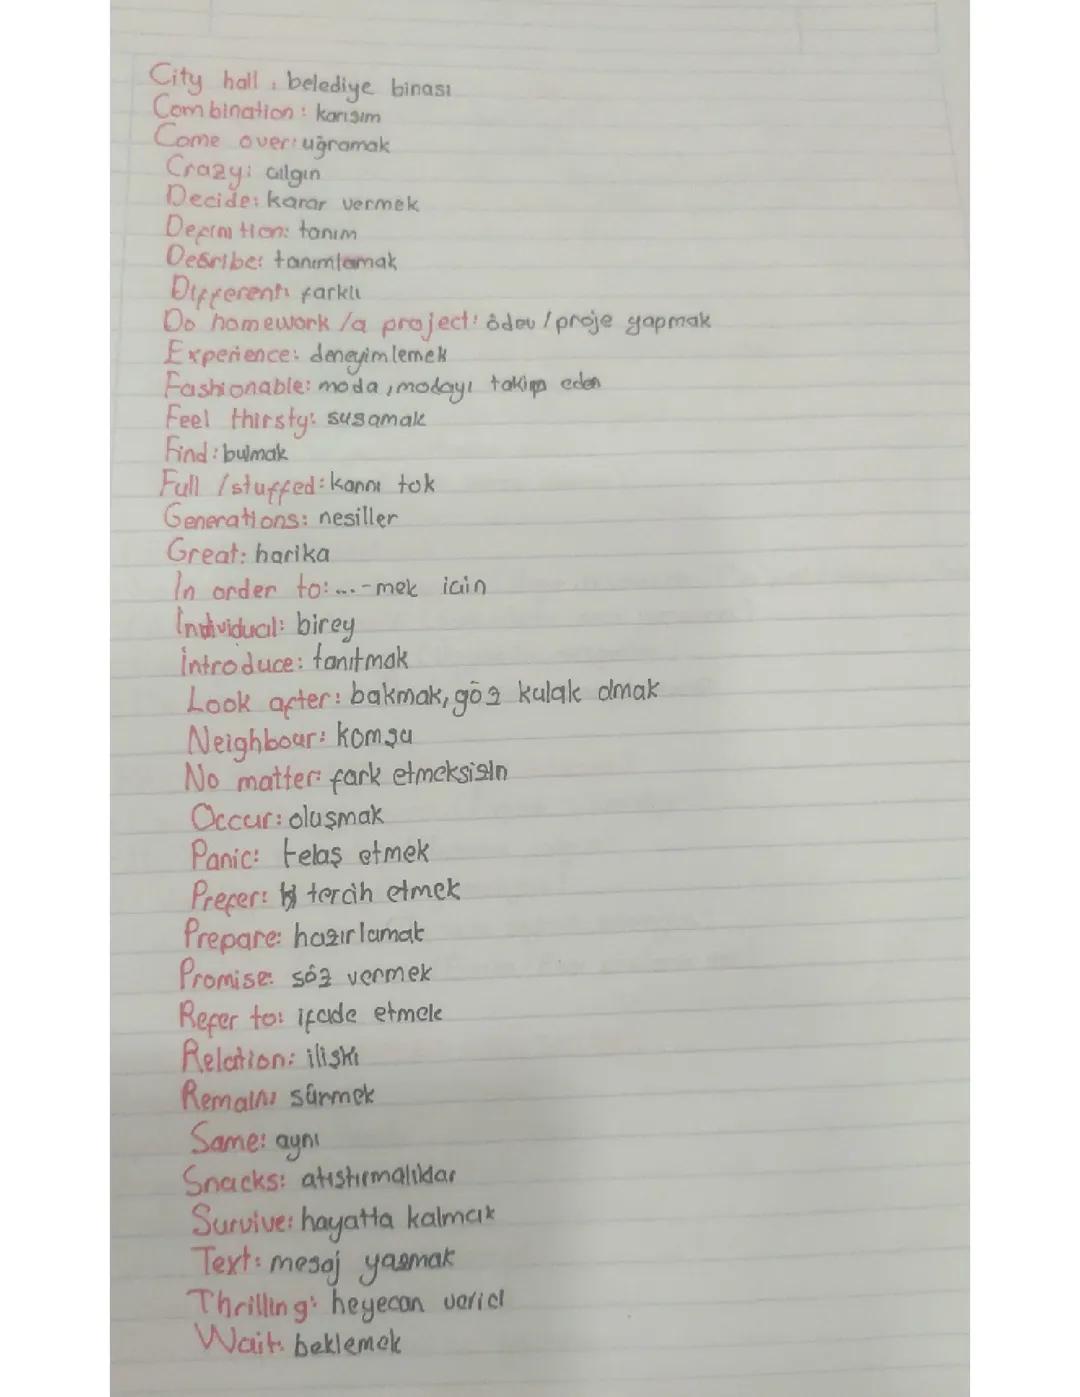 City hall : belediye binası
Combination : karışım
Come over: uğramak
Crazy: çılgın
Decide: karar vermek
Definition: tanım
Describe: tanımlamak
Different: farklı
Do homework /a project: ödev / proje yapmak
Experience: deneyimlemek
Fashionable: moda, modayı takip eden
Feel thirsty: susamak
Find : bulmak
Full / stuffed : karnı tok
Generations: nesiller
Great: harika
In order to: ... -mek için
Individual: birey
introduce: tanıtmak
Look after: bakmak, göz kulak olmak
Neighbour: komşu
No matter: fark etmeksizin
Occur: oluşmak
Panic: telaş etmek
Prefer: tercih etmek
Prepare: hazırlamak
Promise: söz vermek
Refer to: ifade etmek
Relation: ilişki
Remain: sürmek
Same: aynı
Snacks: atıştırmalıklar
Survive: hayatta kalmak
Text: mesaj yazmak
Thrilling: heyecan verici
Wait: beklemek